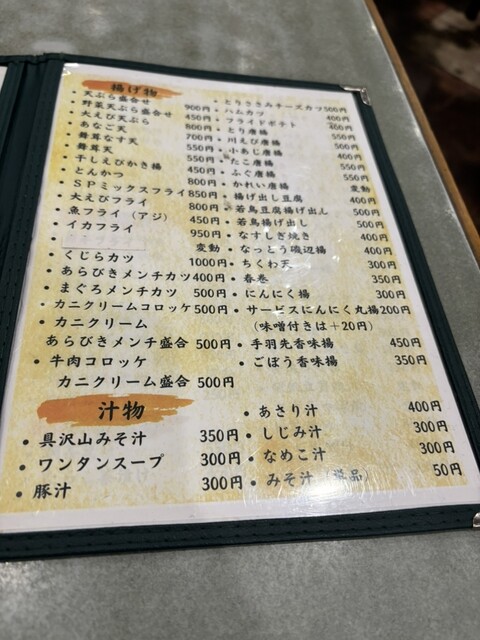 揚げ物
・天ぷら盛合せ 900円
・野菜天ぷら盛合せ 450円
・大えび天ぷら 800円
・あなご天 700円
・舞茸なす天 550円
・舞茸天 550円
・干しえびかき揚 450円
・とんかつ 800円
・SPミックスフライ 850円
・大えびフライ 800円
・魚フライ（アジ） 450円
・イカフライ 950円
・ 変動
・くじらカツ 1000円
・あらびきメンチカツ 400円
・まぐろメンチカツ 500円
・カニクリームコロッケ 500円
・カニクリーム
あらびきメンチ盛合 500円
・牛肉コロッケ
カニクリーム盛合 500円
・とりささみチーズカツ 500円
・ハムカツ 400円
・フライドポテト 400円
・とり唐揚 550円
・川えび唐揚 500円
・小あじ唐揚 400円
・たこ唐揚 550円
・ふぐ唐揚 550円
・かれい唐揚 変動
・揚げ出し豆腐 400円
・若鳥豆腐揚げ出し 500円
・若鳥揚げ出し 500円
・なすしぎ焼き 400円
・なっとう磯辺揚 400円
・ちくわ天 300円
・春巻 350円
・にんにく揚 300円
・サービスにんにく丸揚 200円
（味噌付きは＋20円）
・手羽先香味揚 450円
・ごぼう香味揚 350円
汁物
・具沢山みそ汁 350円
・ワンタンスープ 300円
・豚汁 300円
・あさり汁 400円
・しじみ汁 300円
・なめこ汁 300円
・みそ汁（単品） 50円